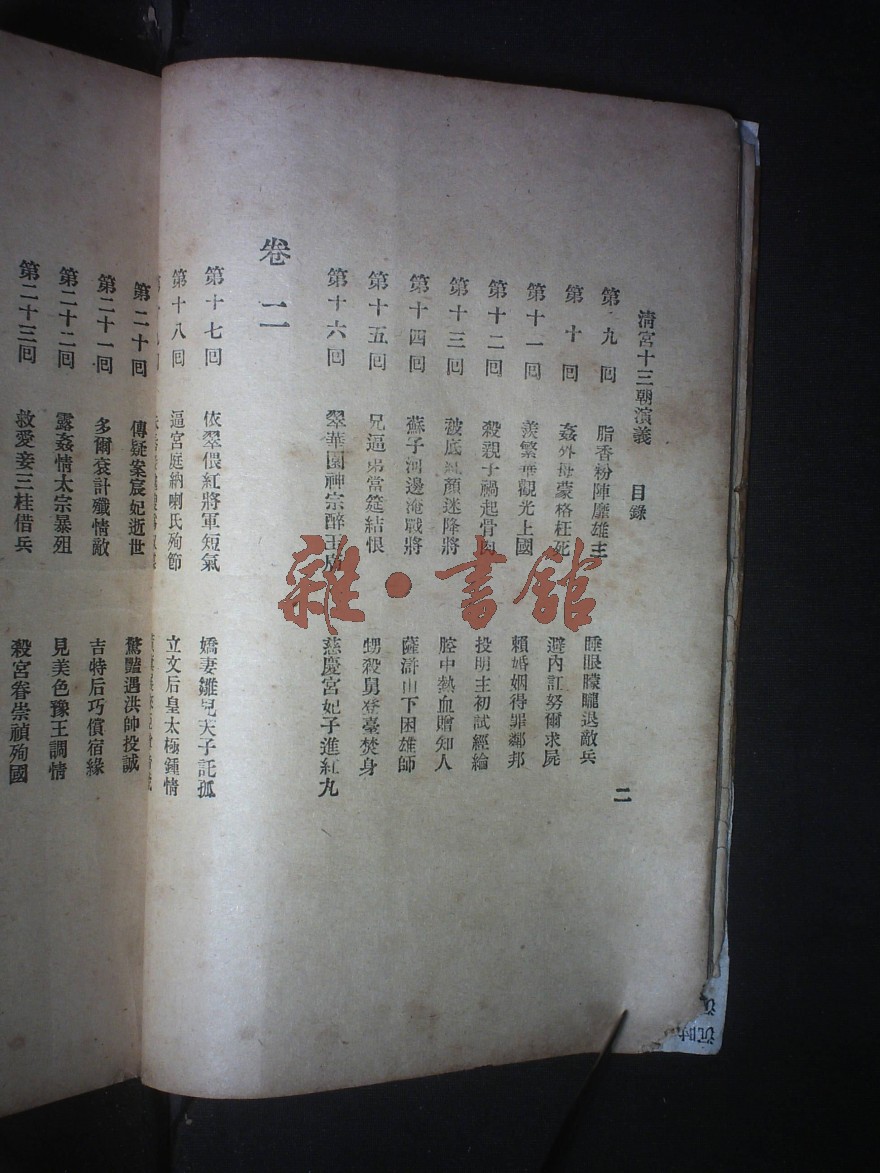 清宮十三朝演義 目錄 二
第九回 脂香粉陣靡雄主 睡眼朦朧退敵兵
第十回 姦外母蒙格枉死 避內訌努爾求屍
第十一回 羨繁華觀光上國 賴婚姻得罪鄰邦
第十二回 殺親子禍起骨肉 投明主初試經綸
第十三回 被底紅顏迷降將 腔中熱血贈知人
第十四回 蘇子河邊淹戰將 薩滸山下困雄師
第十五回 兄逼弟當筵結恨 甥殺舅登臺焚身
第十六回 翠華園神宗醉 慈慶宮妃子進紅丸
卷二
第十七回 依翠偎紅將軍短氣 嬌妻雛兒天子託孤
第十八回 逼宮庭納喇氏殉節 立文后皇太極鍾情
第二十回 傳疑案宸妃逝世 驚豔遇洪帥投誠
第二十一回 多爾袞計殲情敵 吉特后巧償宿緣
第二十二回 露姦情太宗暴殂 見美色豫王調情
第二十三回 救愛妾三桂借兵 殺宮眷崇禎殉國
雜·書館